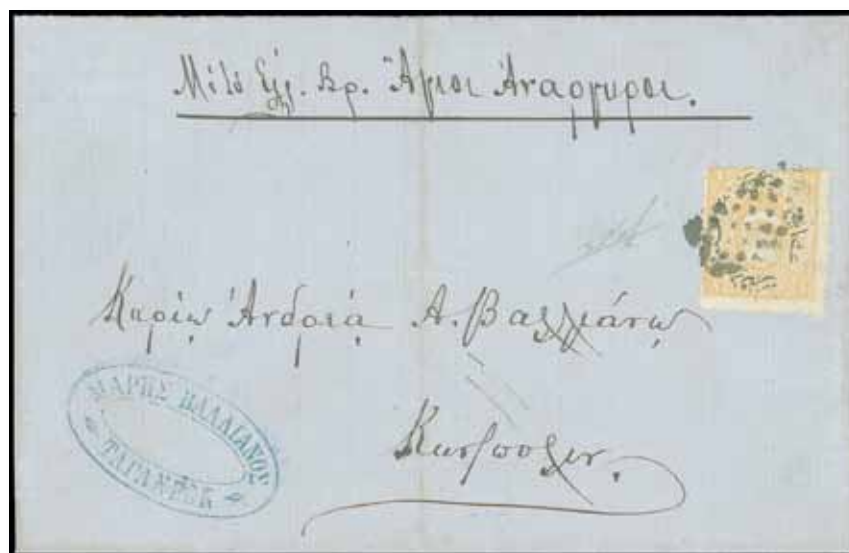 Μὲ τὸ Ἑλλ. Βρ. Ἅγιοι Ἀνάργυροι.
Κυρίῳ Ἀνδρέᾳ Α. Βαλλιάνῳ
Κωνζπολιν.
ΜΑΡΗΣ ΒΑΛΛΙΑΝΟΥ
ΤΑΓΑΝΡΟΚ